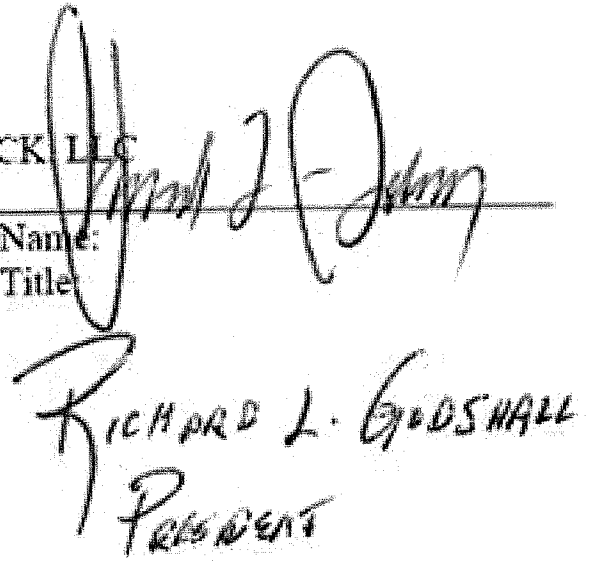 CK LLC
Name:
Title:
RICHARD L. GODSHALL
PRESIDENT